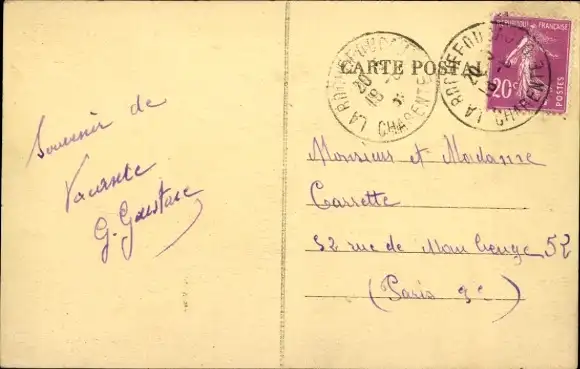 Souvenir de
Vacance
G. Gustave
CARTE POSTALE
LA ROCHEFOUCAULD
CHARENTE
20
18
LA ROCHEFOUCAULD
CHARENTE
20
RÉPUBLIQUE FRANÇAISE
20c
POSTES
Monsieur et Madame
Carrette
52 rue de Maubeuge 52
(Paris 9e)